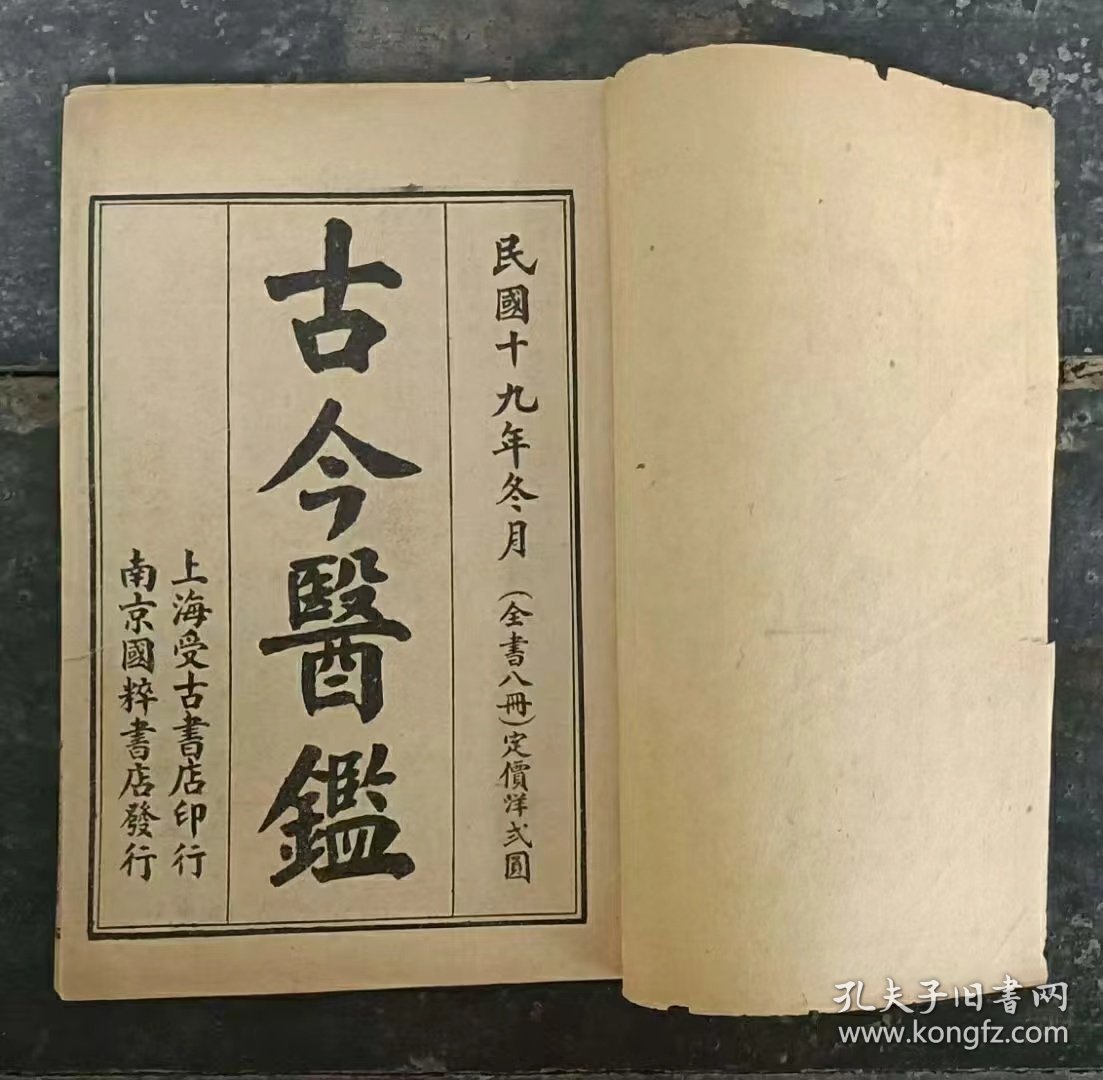 民國十九年冬月（全書八冊）定價洋弍圓
古今醫鑑
上海受古書店印行
南京國粹書店發行
孔夫子旧书网
www.kongfz.com